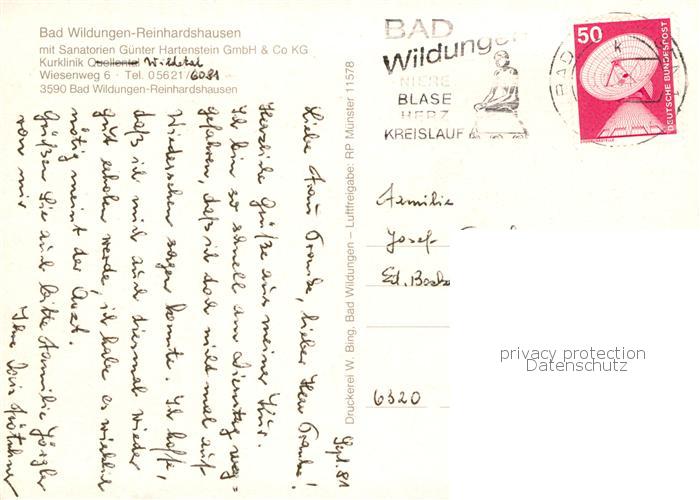 Bad Wildungen-Reinhardshausen
mit Sanatorien Günter Hartenstein GmbH & Co KG
Kurklinik Quellental Wildetal
Wiesenweg 6 · Tel. 05621/6081
3590 Bad Wildungen-Reinhardshausen
Sept. 81
Liebe Frau Franke, lieber Herr Franke!
Herzliche Grüße aus meiner Kur.
Ich bin so schnell am Dienstag weg=
gefahren, daß ich doch nicht mal auf
Wiedersehen sagen konnte. Ich hoffe,
daß ich mich auch diesmal wieder
gut erholen werde, ich habe es wirklich
nötig meint der Arzt.
Grüßen Sie auch bitte Familie
von mir
Ihre
Druckerei W. Bing, Bad Wildungen – Luftfreigabe: RP Münster 11578
BAD
Wildungen
NIERE
BLASE
HERZ
KREISLAUF
BAD
k
50
DEUTSCHE BUNDESPOST
Familie
Josef
Ed.
6320
privacy protection
Datenschutz